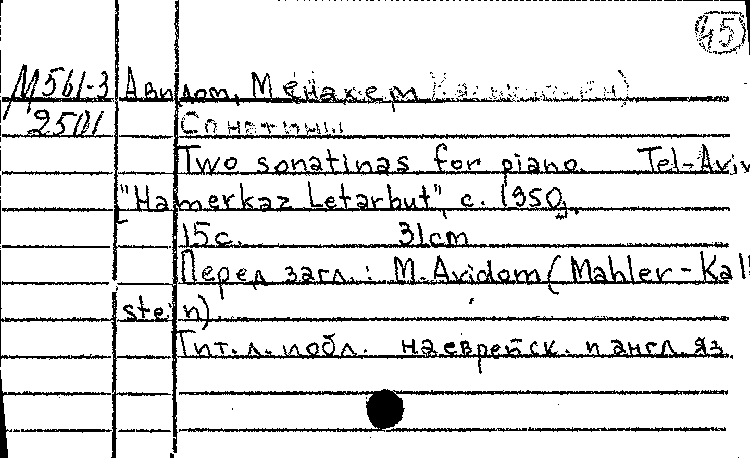 45
М561-3 Авидом, Менахем
2501 Сонатины
Two sonatinas for piano. Tel-Aviv
"Hamerkaz Letarbut", c. 1950,
15с. 31cm
Перед загл.: M. Avidom (Mahler-Kal
stein).
Тит. л. и обл. на еврейск. и англ. яз.